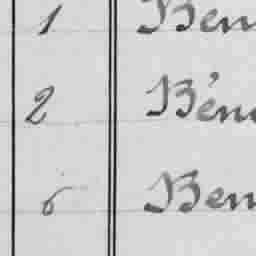 1 Ben
2 Bén
6 Ben